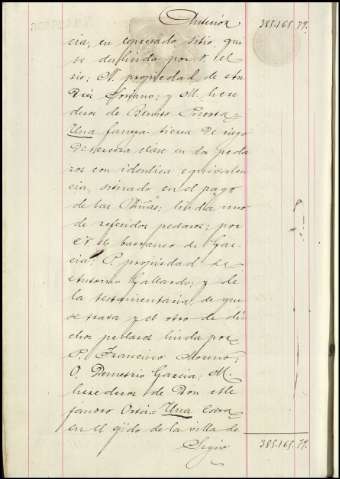 Anterior 385.165.79.
cia, en expresado sitio que
se deslinda por N. el
rio; M. propiedad de An
Soriano; y M. here
deros de
Una fanega tierra de riego
de tercera clase en
zos con identica equivalen
cia, situado en el pago
de las Viñas; linda uno
de referidos pedazos; por
el barranco de Gar
cia; P. propiedad de
Antonio Gallardo; y de
la testamentaria de que
se trata y el otro de di
chos pedazos linda por
P. Francisco Moreno;
O. Demetrio Garcia; M.
herederos de Don
Una
en el ejido de la villa de
Sigue 385.165.79.